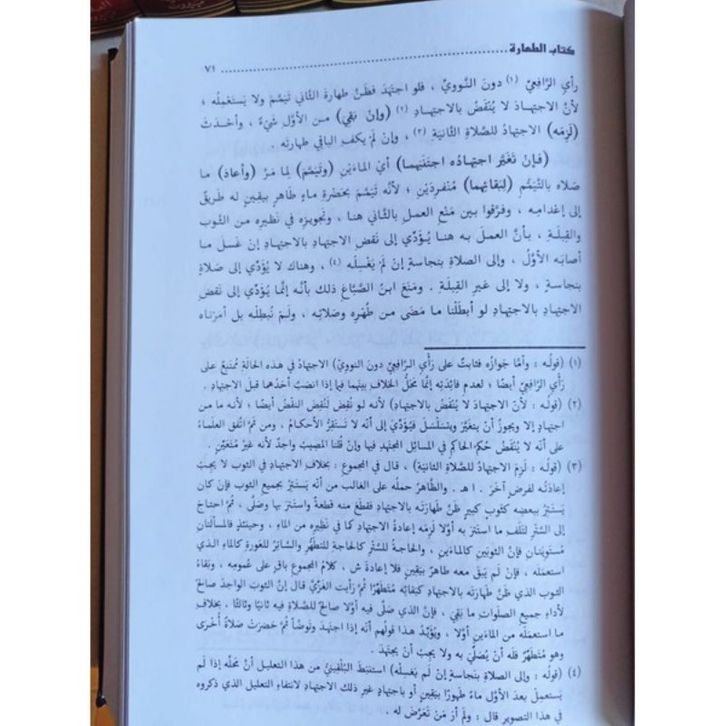 كتاب الطهارة ................................ ٧١
رأي الرَّافعِيِّ (١) دونَ النَّوويِّ ، فلو اجتهَدَ فظنَّ طهارةَ الثَّاني تَيَمَّمَ ولا يَستعمِلُه ؛
لأنَّ الاجتِهادَ لا يُنْقَضُ بالاجتِهادِ (٢) (وإنْ بَقِيَ) من الأوَّلِ شَيْءٌ ، وأحدَثَ
(لَزِمَه) الاجتهادُ للصَّلاةِ الثَّانيَةِ (٣) ، وإنْ لم يكفِ الباقي طهارتَه .
(فإنْ تَغَيَّرَ اجتهادُه اجتَنَبَهما) أيْ الماءَيْنِ (وتَيَمَّمَ) لِما مَرَّ (وأعادَ) ما
صَلاه بالتَّيَمُّمِ (لبَقائِهما) مُنْفَرِدَيْنِ ؛ لأنَّه تَيَمَّمَ بحَضْرةِ ماءٍ طاهرٍ بيَقينٍ له طَريقٌ
إلى إعْدامِه ، وفرَّقوا بين مَنْعِ العملِ بالثَّاني هنا ، وتجويزِه في نَظيرِه من الثَّوبِ
والقِبلَةِ ، بأنَّ العملَ به هنا يُؤَدِّي إلى نَقضِ الاجتِهادِ بالاجتِهادِ إنْ غَسلَ ما
أصابَه الأوَّلُ ، وإلى الصَّلاةِ بنجاسةٍ إنْ لم يَغْسِلْه (٤) ، وهناك لا يُؤَدِّي إلى صَلاةٍ
بنجاسةٍ ، ولا إلى غيرِ القِبلَةِ . ومَنَعَ ابنُ الصَّبَّاغِ ذلك بأنَّه إنَّما يُؤَدِّي إلى نَقضِ
الاجتِهادِ بالاجتِهادِ لو أبطَلْنا ما مَضَى من طُهْرِه وصَلاتِه ، ولَمْ نُبطِلْه بل أمَرْناه
(١) (قولُه : وأمَّا جَوازُه فثابتٌ على رَأيِ الرَّافعِيِّ دونَ النوويِّ) الاجتهادُ في هذه الحالةِ مُمتَنِعٌ على
رَأيِ الرَّافعِيِّ أيضًا ؛ لعدمِ فائِدَتِه إنَّما مَحَلُّ الخلافِ بينَهما فيما إذا انصَبَّ أحدُهما قبلَ الاجتِهادِ .
(٢) (قولُه : لأنَّ الاجتِهادَ لا يُنْقَضُ بالاجتِهادِ) لأنه لو نُقِضَ لَنُقِضَ النَّقضُ أيضًا ؛ لأنه ما من
اجتِهادٍ إلا ويجوزُ أنْ يتغيَّرَ ويتسَلسَلَ فيُؤدِّي إلى أنَّه لا تَستَقِرُّ الأحكامُ ، ومن ثَمَّ اتَّفقَ العلماءُ
على أنَّه لا يُنْقَضُ حُكمُ الحاكمِ في المسائلِ المجتَهَدِ فيها وإنْ قُلنا المصيبُ واحدٌ لأنه غيرُ مُتَعَيِّنٍ .
(٣) (قولُه : لَزِمَ الاجتِهادُ للصَّلاةِ الثانيةِ) ، قال في المجموعِ : بخلافِ الاجتِهادِ في الثوبِ لا يجبُ
إعادَتُه لفرضٍ آخَرَ . ا هـ . والظَّاهرُ حملُه على الغالبِ من أنَّه يَستَترُ بجميعِ الثوبِ فإن كان
يَستَتِرُ ببعضِه كثوبٍ كبيرٍ ظَنَّ طَهارَتَه بالاجتِهادِ فقطَعَ منه قطعةً واستَترَ بها وصَلَّى ، ثُمَّ احتاجَ
إلى السَّترِ لتَلفِ ما استَترَ به أوَّلا لَزِمَه إعادةُ الاجتهادِ كما في نَظيرِه من الماءِ ، وحينئذٍ فالمسألتانِ
مُستَويَتانِ فإنَّ الثوبَيْنِ كالماءَيْنِ ، والحاجةُ للسَّترِ كالحاجةِ للتَّطَهُّرِ والسَّاترُ للعَورةِ كالماءِ الذي
استعمَله ، فإنْ لم يَبْقَ معه طاهرٌ بيَقينٍ فلا إعادةَ ش ، كلامُ المجموعِ باقٍ على عُمومِه ، وبَقاءُ
الثوبِ الذي ظَنَّ طَهارَتَه بالاجتِهادِ كبَقائِه مُتَطَهِّرًا ثُمَّ رأيت الغَزِّيَّ قال إنَّ الثوبَ الواحدَ صالحٌ
لأداءِ جميعِ الصَّلَواتِ ما بَقِيَ ، فإنَّ الذي صَلَّى فيه أوَّلا صالحٌ للصَّلاةِ فيه ثانيًا وثالثًا . بخلافِ
ما استعمَلَه من الماءَيْنِ أوَّلا ، ويُؤَيِّدُ هذا قولُهم أنَّه إذا اجتَهَدَ وتَوضَّأ ثُمَّ حضَرَتْ صَلاةٌ أُخرى
وهو مُتَطَهِّرٌ فلَه أنْ يُصَلِّيَ به ولا يجبُ أنْ يجتَهِدَ .
(٤) (قولُه : وإلى الصَّلاةِ بنجاسةٍ إنْ لم يَغسِلْه) استَنبَطَ البُلْقينيُّ من هذا التعليلِ أنَّ محلَّه إذا لَم
يَستَعمِلْ بعدَ الأوَّلِ ماءً طَهورًا بيَقينٍ أو باجتِهادٍ غيرِ ذلك الاجتِهادِ لانتِفاءِ التعليلِ الذي ذكروه
في هذا التصويرِ قال : ولَم أرَ مَنْ تَعَرَّضَ له .